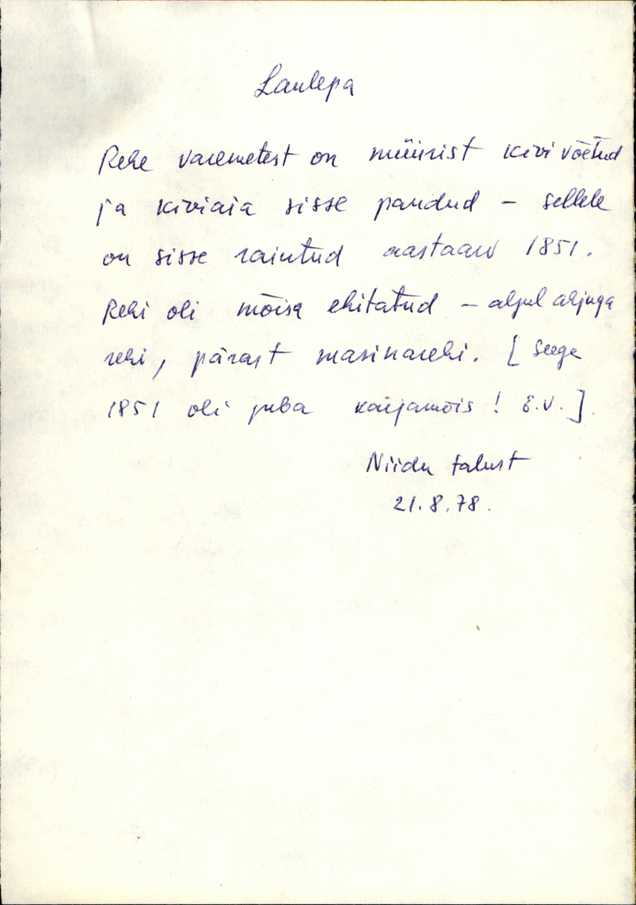 Laulepa
Rehe varemetest on müürist kivi võetud
ja kiviaia sisse pandud – sellele
on sisse raiutud aastaarv 1851.
Rehi oli mõisa ehitatud – algul ahjuga
rehi, pärast masinarehi. [Seega
1851 oli juba karjamõis! E.V.].
Niidu talust
21.8.78.